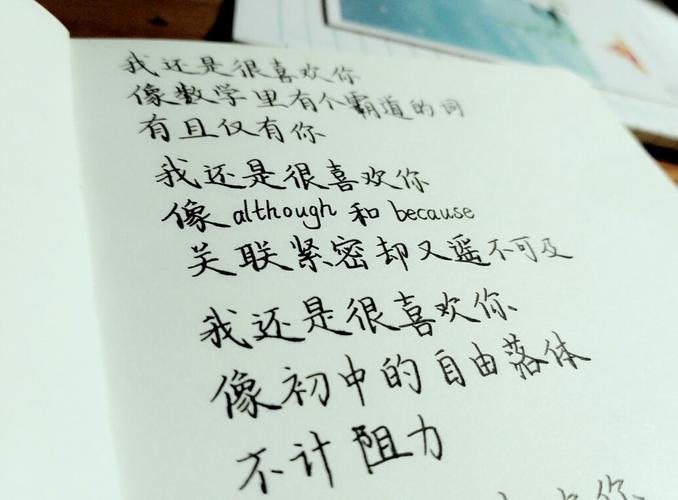 我还是很喜欢你
像数学里有个霸道的词
有且仅有你
我还是很喜欢你
像 although 和 because
关联紧密却又遥不可及
我还是很喜欢你
像初中的自由落体
不计阻力
你